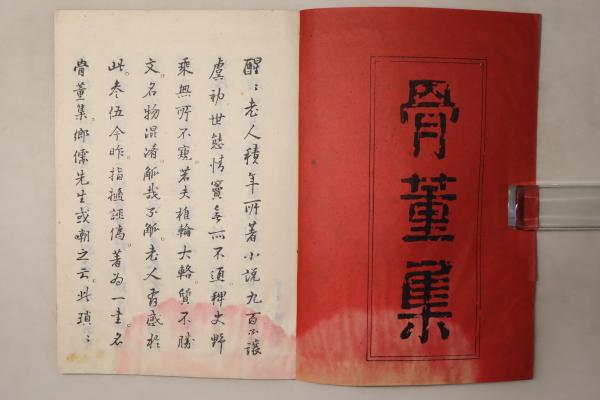 骨董集
醒〻老人積年所著小説九百不讓
虞初世態情竇無所不通稗史野
乘無所不窺若夫椎輪大輅質不勝
文。名物混淆觚哉不觚。老人有感於
此。参伍今昨。指擿偽。著為一書名
骨董集。鄉儒先生或嘲之云。此瑣〻